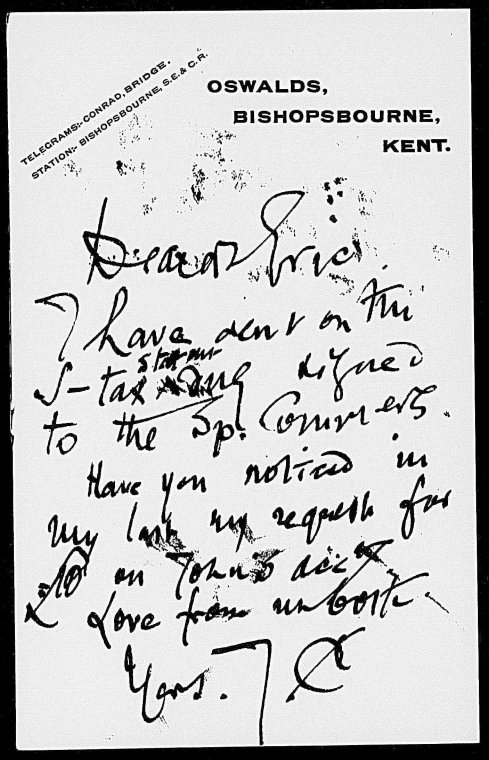 TELEGRAMS:- CONRAD, BRIDGE.
STATION:- BISHOPSBOURNE, S.E. & C.R.
OSWALDS,
BISHOPSBOURNE,
KENT.
Dearest Eric.
I have sent on the
Statement
S-tax signed
to the Sp. Commers.
Have you noticed in
my last my request for
£10 on John's acct
Love from us both.
Yours. J. C